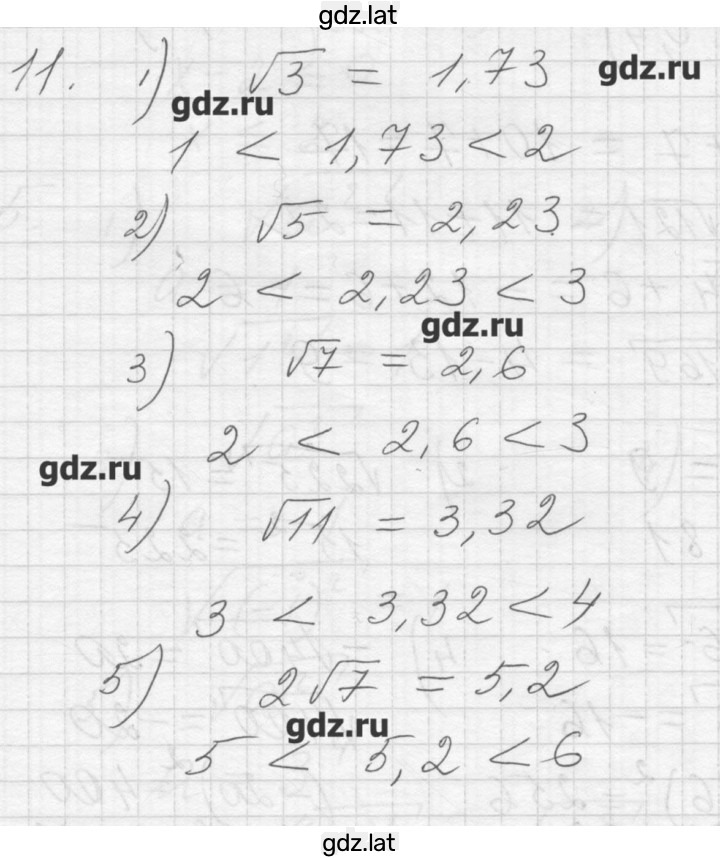 gdz.lat
11. 1) √3 = 1,73 gdz.ru
gdz.ru
1 < 1,73 < 2
2) √5 = 2,23
2 < 2,23 < 3
gdz.ru
3) √7 = 2,6
2 < 2,6 < 3
gdz.ru
4) √11 = 3,32
3 < 3,32 < 4
5) 2√7 = 5,2
gdz.ru
5 < 5,2 < 6
gdz.lat